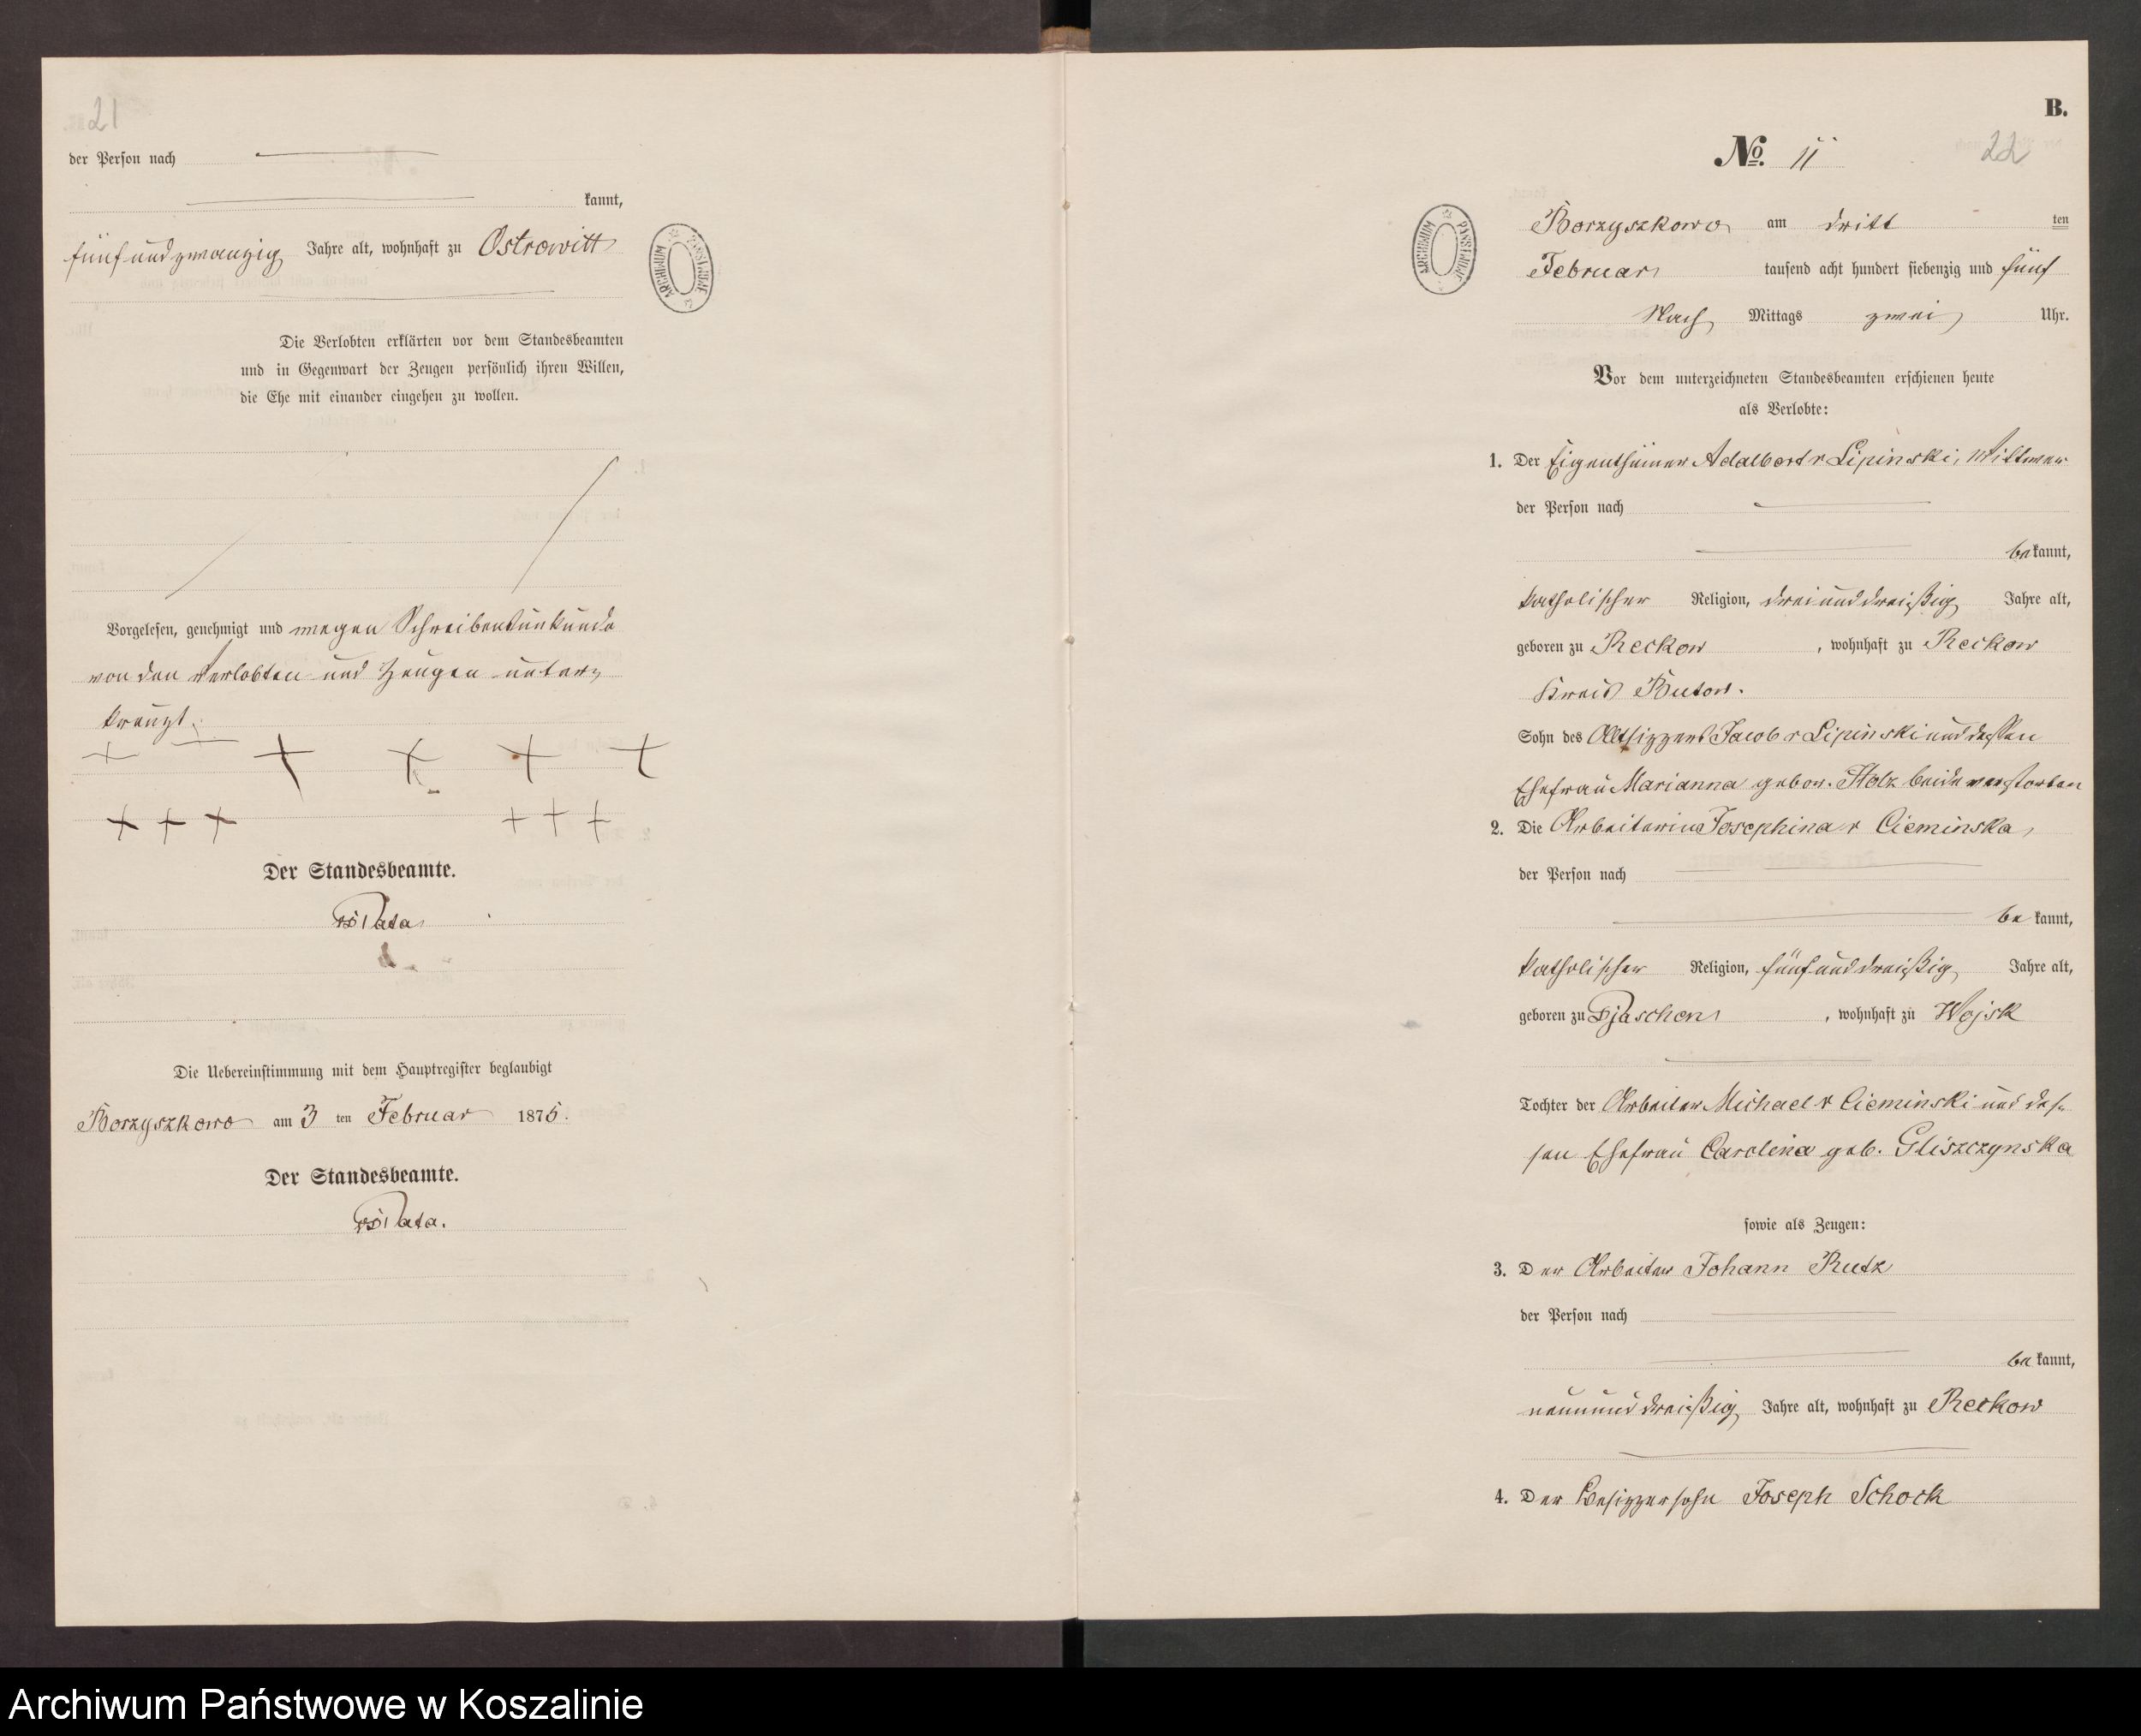 21
der Person nach
kannt,
fünfundzwanzig Jahre alt, wohnhaft zu Ostrowitt
Die Verlobten erklärten vor dem Standesbeamten
und in Gegenwart der Zeugen persönlich ihren Willen,
die Ehe mit einander eingehen zu wollen.
Vorgelesen, genehmigt und wegen Schreibensunkunde
von den Verlobten und Zeugen unter=
kreuzt.
+ + + + +
+ + + + + +
Der Standesbeamte.
Die Uebereinstimmung mit dem Hauptregister beglaubigt
Borzyszkowo am 3 ten Februar 1875.
Der Standesbeamte.
ARCHIWUM PAŃSTWOWE
B.
No. 11
22
ARCHIWUM PAŃSTWOWE
Borzyszkowo am dritt ten
Februar tausend acht hundert siebenzig und fünf
Nach Mittags zwei Uhr.
Vor dem unterzeichneten Standesbeamten erschienen heute
als Verlobte:
1. Der Eigenthümer Adalbert v Lipinski, Wittwer
der Person nach
bekannt,
katholischer Religion, dreiunddreißig Jahre alt,
geboren zu Reckow, wohnhaft zu Reckow
Kreis Butow.
Sohn des Altsitzers Jacob v Lipinski und dessen
Ehefrau Marianna gebor. Stolz beide verstorben
2. Die Arbeiterin Josephina v Cieminska,
der Person nach
bekannt,
katholischer Religion, fünfunddreißig Jahre alt,
geboren zu Pjaschen, wohnhaft zu Wojsk
Tochter der Arbeiter Michael v Cieminski und des=
sen Ehefrau Carolina geb. Gliszczynska
sowie als Zeugen:
3. Der Arbeiter Johann Rutz
der Person nach
bekannt,
neununddreißig Jahre alt, wohnhaft zu Reckow
4. Der Besitzersohn Joseph Schock
Archiwum Państwowe w Koszalinie